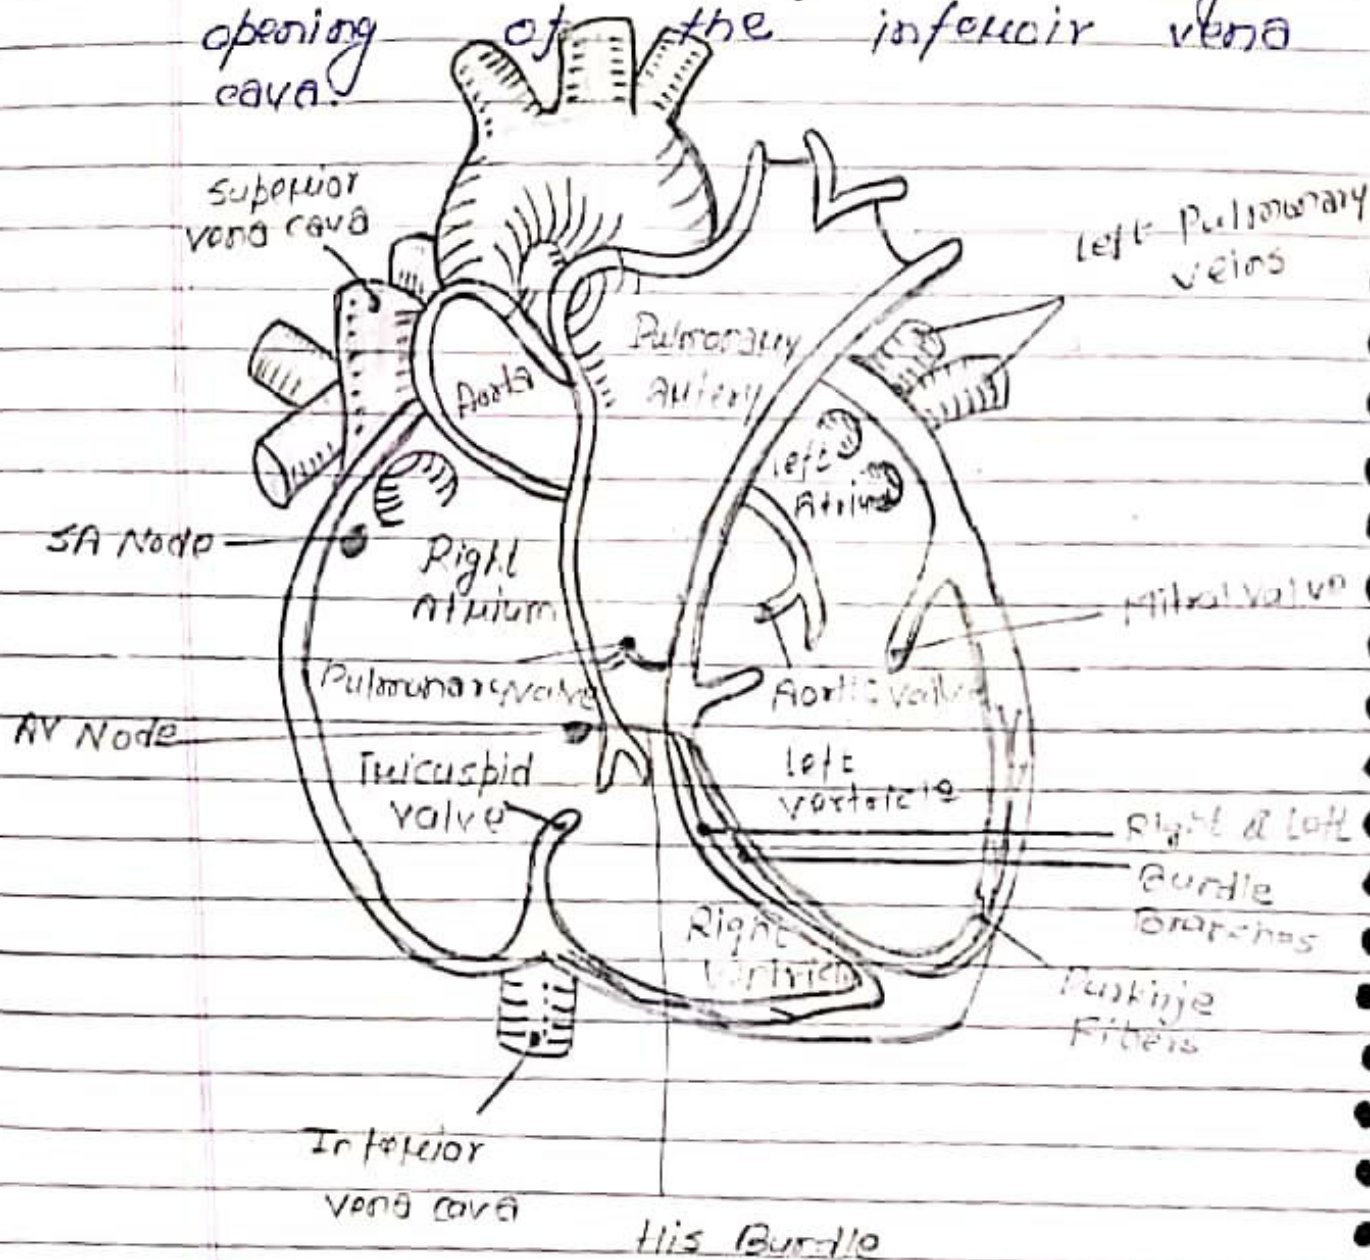 opening of the inferioir vena
cava.
Superior
vena cava
Left Pulmonary
veins
Pulmonary
Artery
Aorta
Left
Atrium
SA Node
Right
Atrium
Mitral valve
Pulmunary valve
Aortic valve
AV Node
Tricuspid
valve
left
ventricle
Right & Left
Bundle
Branches
Right
Ventricle
Purkinje
Fibers
Inferior
vena cava
His Bundle